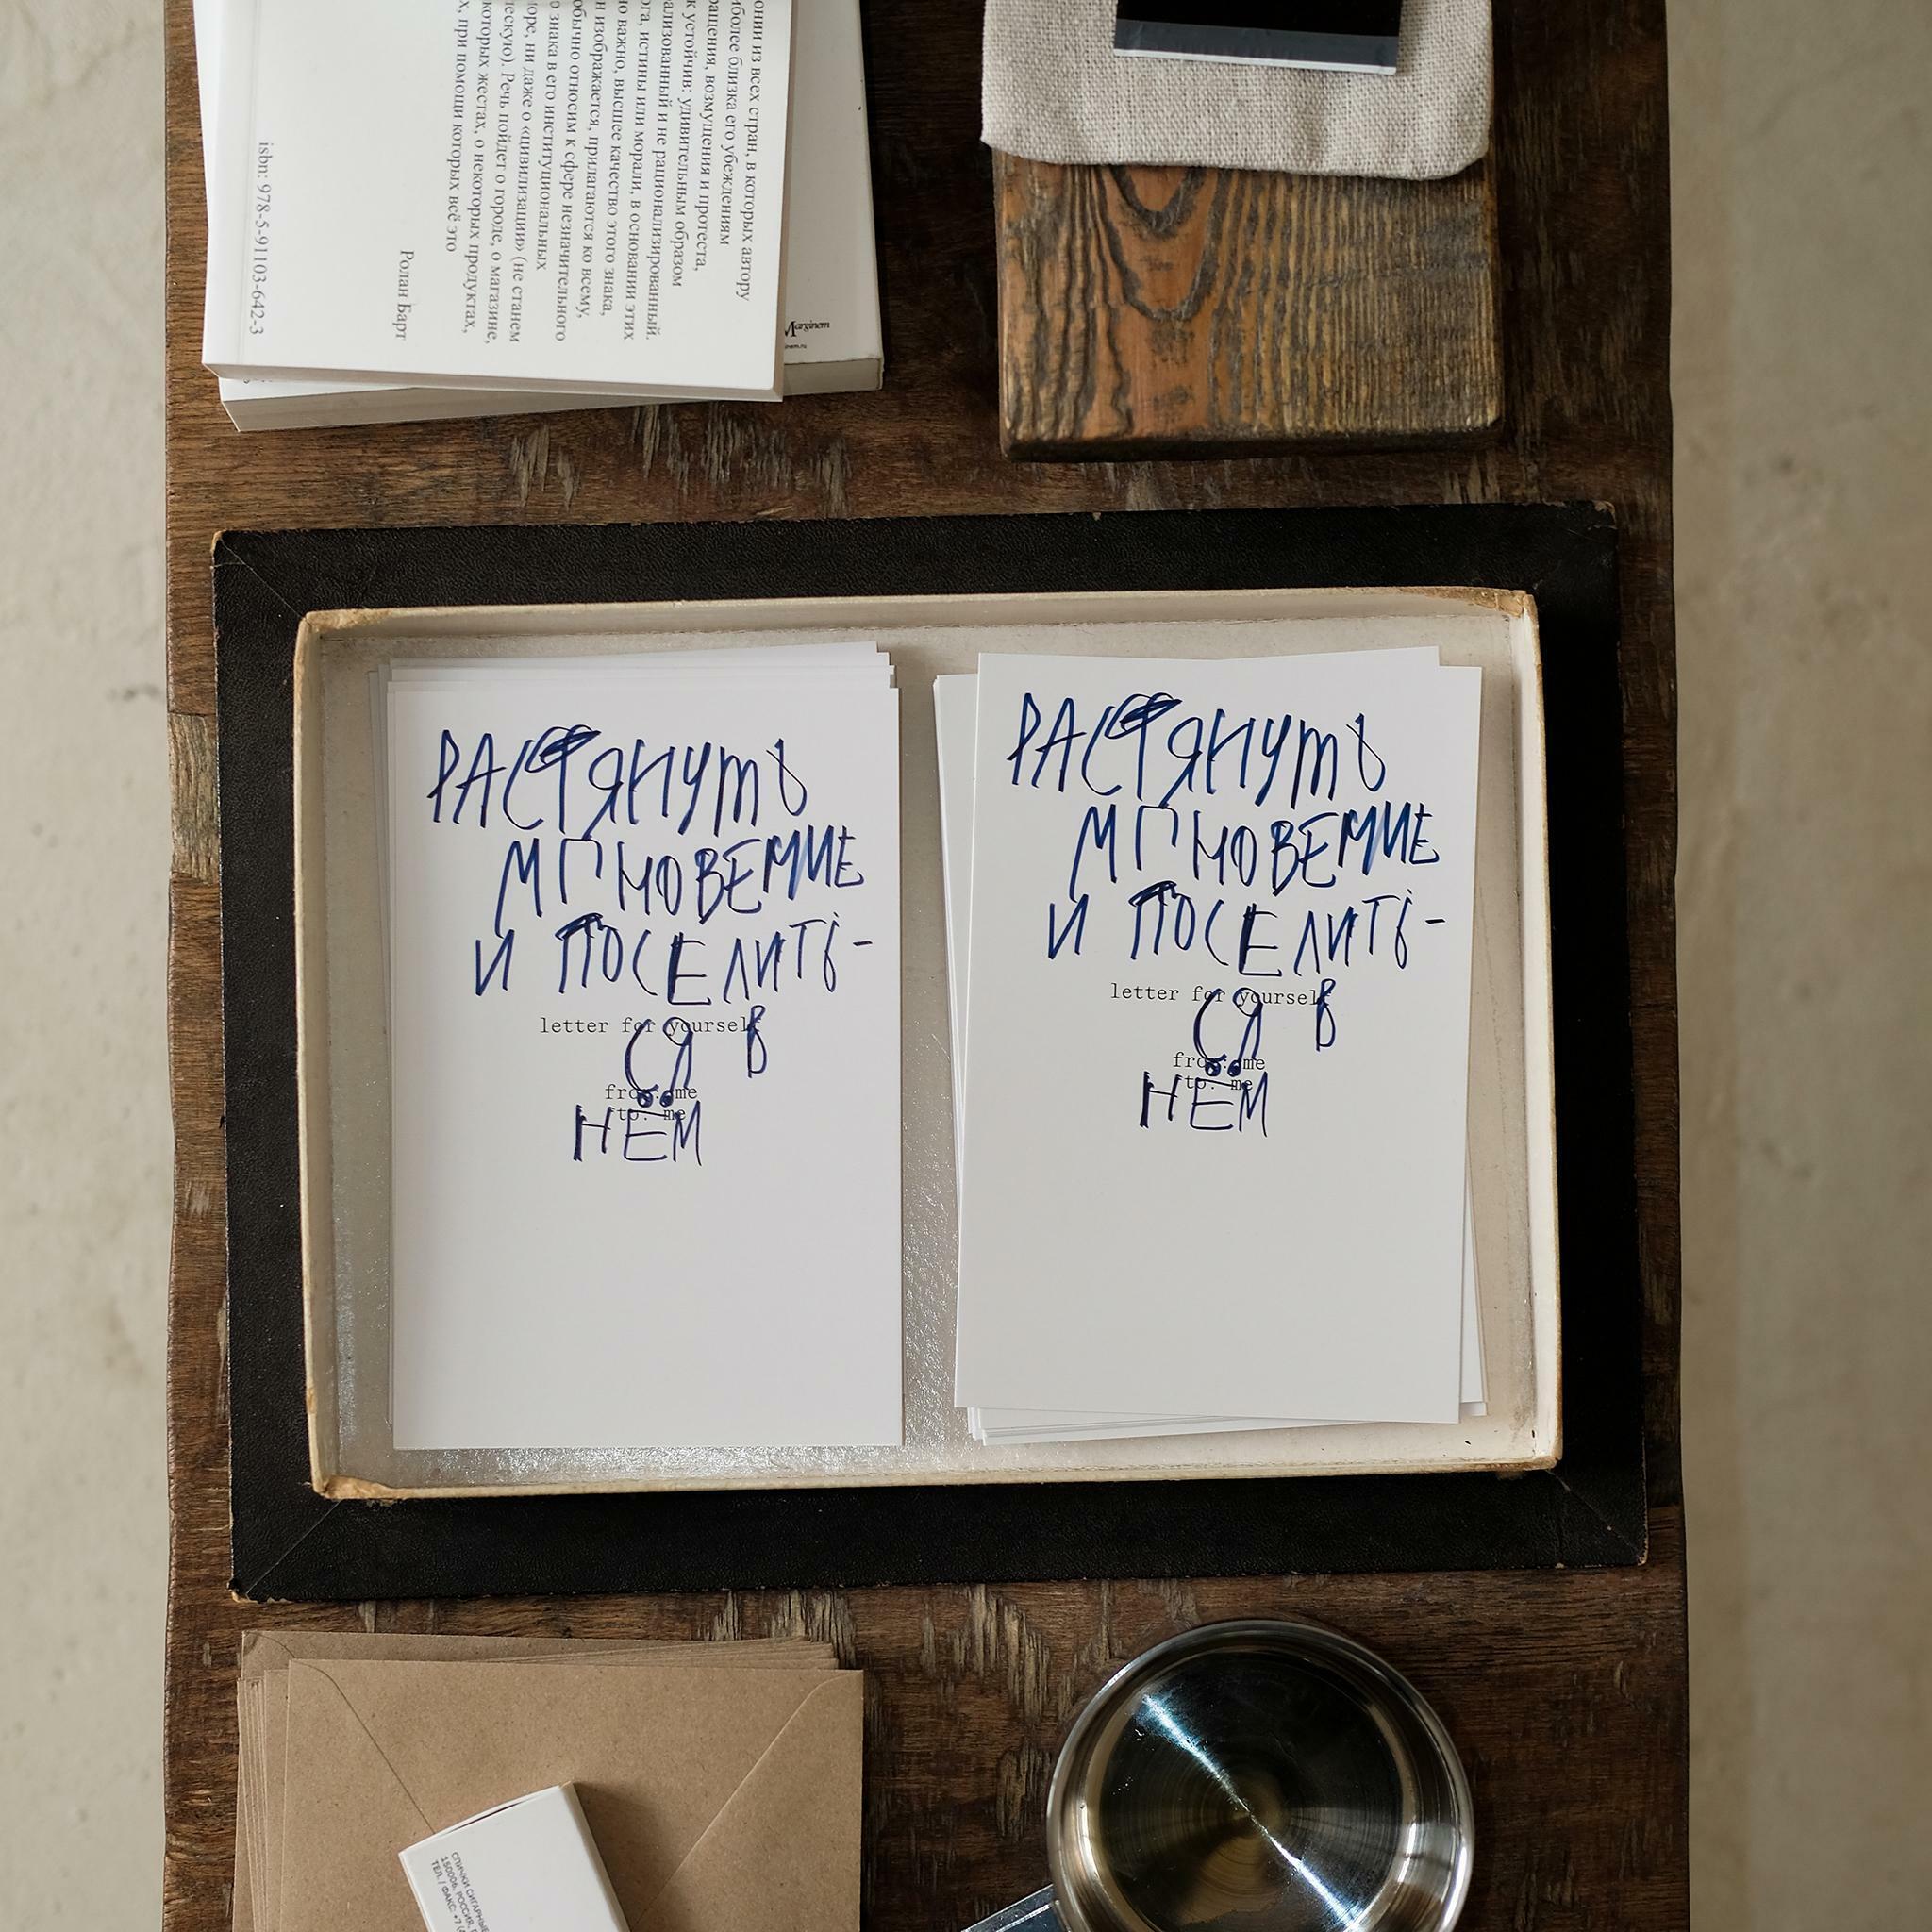 онии из всех стран, в которых автору
иболее близка его убеждениям
ращения, возмущения и протеста,
к устойчив: удивительным образом
рализованный и не рационализированный.
ога, истины или морали, в основании этих
но важно, высшее качество этого знака,
н изображается, прилагаются ко всему,
обычно относим к сфере незначительного
о знака в его институциональных
оре, ни даже о «цивилизации» (не станем
ческую). Речь пойдет о городе, о магазине,
которых жестах, о некоторых продуктах,
х, при помощи которых всё это
Ролан Барт
isbn: 978-5-91103-642-3
Marginem
inem.ru
РАСТЯНУТЬ
МГНОВЕНИЕ
И ПОСЕЛИТЬ-
letter for yourself
СЯ В
from: me
to: me
НЁМ
РАСТЯНУТЬ
МГНОВЕНИЕ
И ПОСЕЛИТЬ-
letter for yourself
СЯ В
from: me
to: me
НЁМ
СПИЧКИ СИГАРНЫЕ
150006, РОССИЯ,
ТЕЛ. / ФАКС: +7